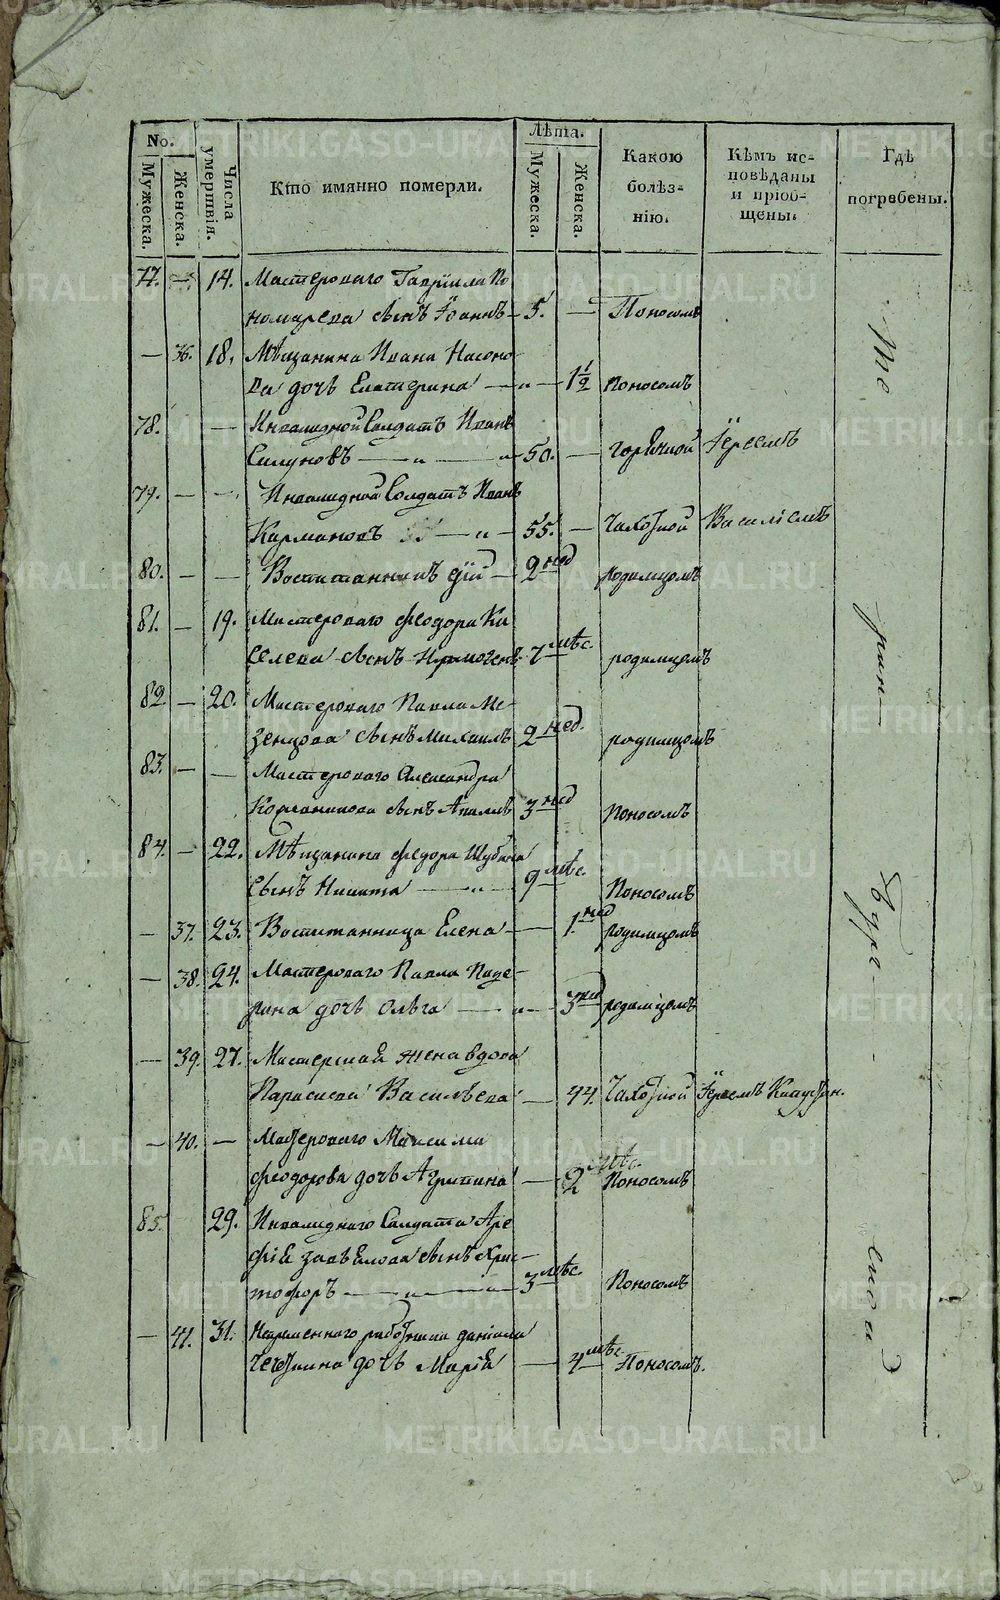 No.
Мужеска.
Женска.
Числа умертвія.
Кто имянно померли.
Лѣта.
Мужеска.
Женска.
Какою болѣз-нію.
Кѣмъ ис-повѣданы и пріоб-щены.
Гдѣ погребены.
77. — 14. Мастероваго Гавріила По
номарева сынъ Іоаннъ — 5. — Поносомъ
— 36. 18. Мѣщанина Ивана Насоно-
ва дочь Екатерина — „ — 1½ Поносомъ
78. — Инвалидной Солдатъ Иванъ
Силуновъ — „ — „ 50. — горячкой Іереемъ
79. — — Инвалидной Солдатъ Иванъ
Кармановъ — „ — 55. — Чахоткой Василіемъ
80. — — Воспитанникъ — 2 нед родимцомъ
81. — 19. Мастероваго Феодора Ки
селева сынъ Ермогенъ 7 мѣс. родимцомъ
82 — 20. Мастероваго Павла Ме-
зенцова сынъ Михаилъ 2 нед. родимцомъ
83. — — Мастероваго Александра
сынъ 3 нед Поносомъ
84. — 22. Мѣщанина Федора Шубина
сынъ Никита — „ — 9 мѣс. Поносомъ
— 37. 23. Воспитанница Елена — — 1. нед родимцомъ
— 38. 24. Мастероваго Павла
дочь Ольга — „ — 3 нед родимцомъ
— 39. 27. Мастерская жена вдова
Параскева Васильева — 44. Чахоткой Іереемъ
— 40. — Мастероваго Максима
Феодорова дочь Агрипина — 2 мѣс. Поносомъ
85. 29. Инвалиднаго Солдата Аре
фія сынъ Хрис-
тофоръ — „ — 3 мѣс. Поносомъ
— 41. 31. работника Даніила
дочь Марія — 4 мѣс Поносомъ.
METRIKI.GASO-URAL.RU